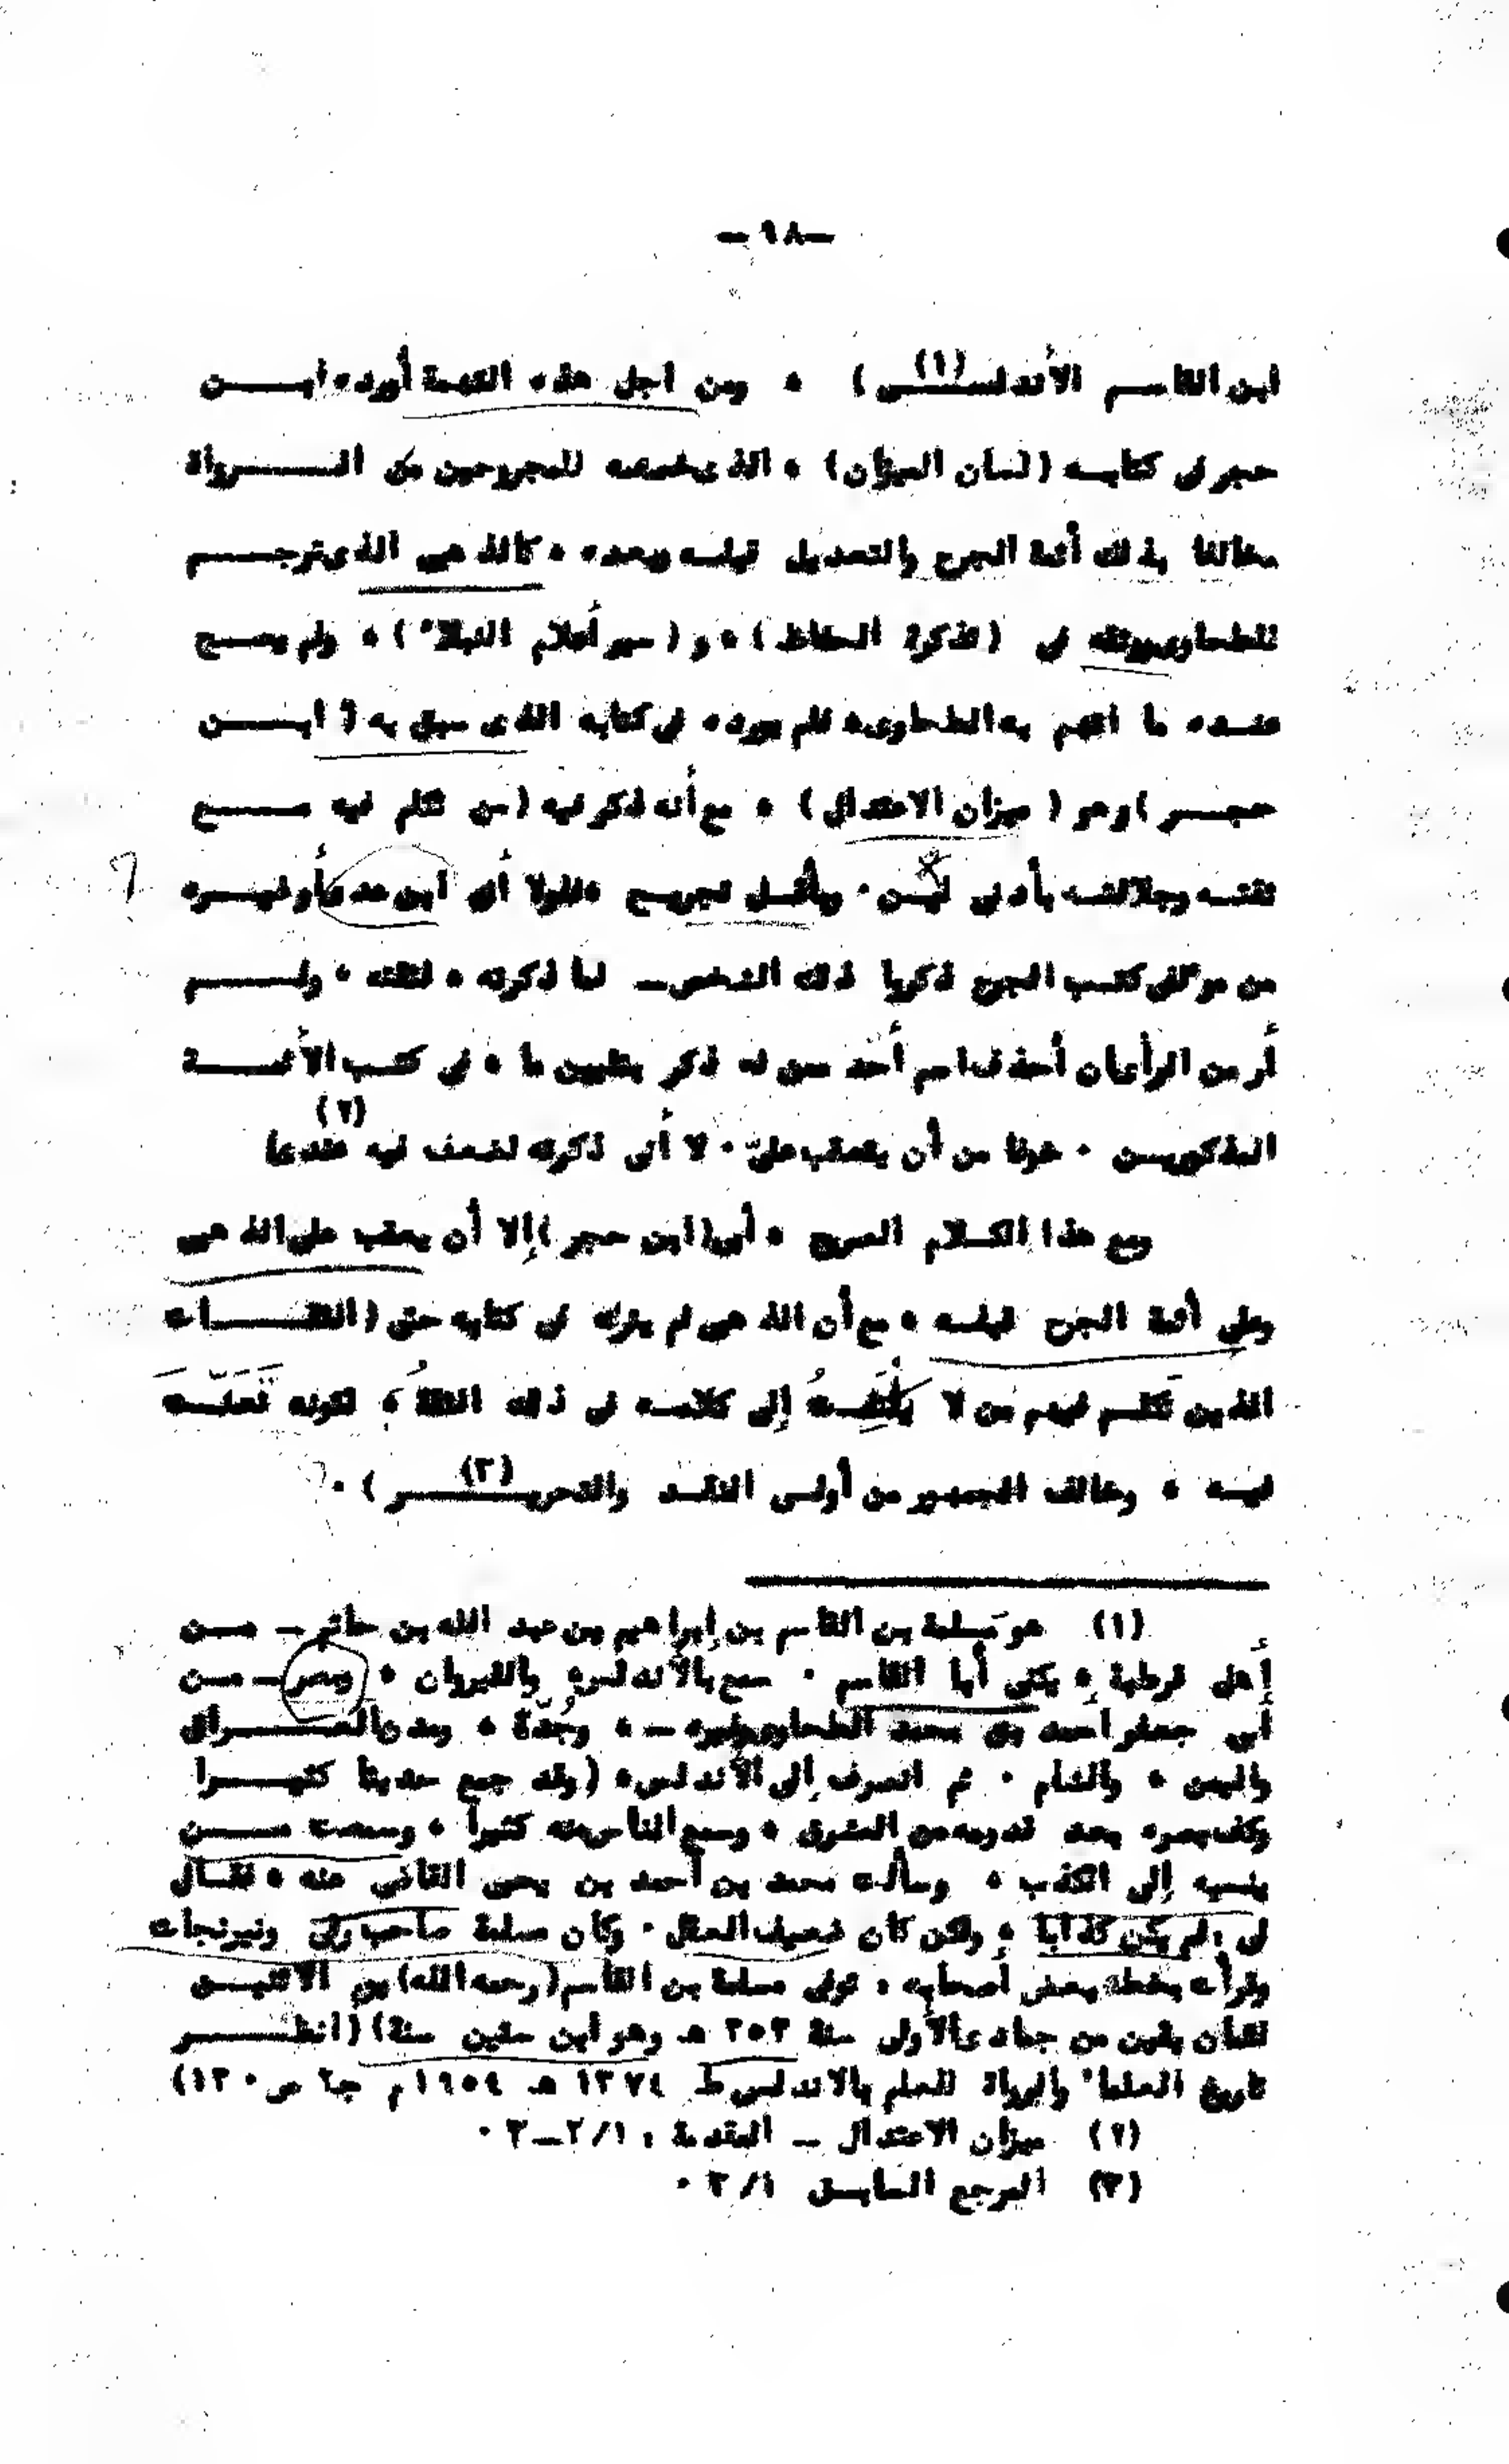 -٩٨-
ابن القاسم الأندلسى (١) ) ، ومن اجل هذه التهمة أورده ابن
حجر فى كتابه (لسان الميزان) ، الذى خصصه للمجروحين من الرواة
مخالفا بذلك أئمة الجرح والتعديل قبله وبعده ، كالذهبى الذى ترجم
للطحاوى ووثقه فى (تذكرة الحفاظ) ، و (سير أعلام النبلاء) ، ولم يصح
عنده ما اتهم به الطحاوى، فلم يورده فى كتابه الذى سبق به ( ابن
حجر ) وهو ( ميزان الاعتدال ) ، مع أنه ذكر فيه (من تكلم فيه مع
ثقته وجلالته بأدنى لين . وبأقل تجريح ، فلولا أن ابن عدى أو غيره
من مؤلفى كتب الجرح ذكروا ذلك الشخص - لما ذكرته ، لثقته ، ولم
أر من الرأى أن أحذف اسم أحد ممن له ذكر بتليين ما ، فى كتب الأئمة
المذكورين . خوفا من أن يتعقب علىّ . لا أنى ذكرته لضعف فيه عندى) (٢)
ومع هذا الكلام الصريح ، أبى (ابن حجر) إلا أن يعقب على الذهبى
وعلى أئمة الجرح قبله ، مع أن الذهبى لم يترك فى كتابه حتى (الثقات
الذين تَكلم فيهم من لا يُلْتَفَتُ إلى كلامه فى ذلك الثقةُ ، لكونه تَعنّتَ
فيه ، وخالف الجمهور من أولى النقد والتحرير) (٣) .
(١) هو مَسلمة بن القاسم بن إبراهيم بن عبد الله بن حاتم - من
أهل قرطبة ، يكنى أبا القاسم . سمع بالأندلس، والقيروان ، ومصر - من
أبى جعفر احمد بن محمد الطحاوى وغيره - ، وجُدّة ، ومدن العراق
واليمن ، والشام . ثم انصرف إلى الأندلس، (وقد جمع حديثا كثيرا
وكف بصره بعد قدومه من المشرق ، وسمع الناس منه كثيرا ، وسمعت من
ينسبه إلى الكذب ، وسألت محمد بن أحمد بن يحيى القاضى عنه ، فقال
لى : لم يكن كذابا ، ولكن كان ضعيف العقل . وكان مسلمة صاحب رقى ونيرنجات
وقرأت بخط بعض أصحابه ، توفى مسلمة بن القاسم (رحمه الله) يوم الاثنين
لثمان بقين من جمادى الأولى سنة ٣٥٣ هـ وهو ابن ستين سنة) (انظر
تاريخ العلماء والرواة للعلم بالاندلس ط ١٣٧٤ هـ ١٩٥٤م جـ٢ ص١٣٠)
(٢) ميزان الاعتدال - المقدمة : ١/ ٢-٣ .
(٣) المرجع السابق ١/ ٣ .